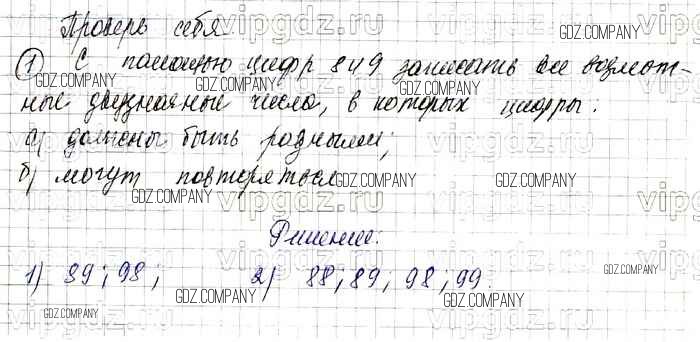 Проверь себя.
① С помощью цифр 8 и 9 записать все возмож-
ные двузначные числа, в которых цифры:
а) должны быть разными;
б) могут повторяться.
Решение:
1) 89; 98; 2) 88; 89; 98; 99.
GDZ.COMPANY
vipgdz.ru